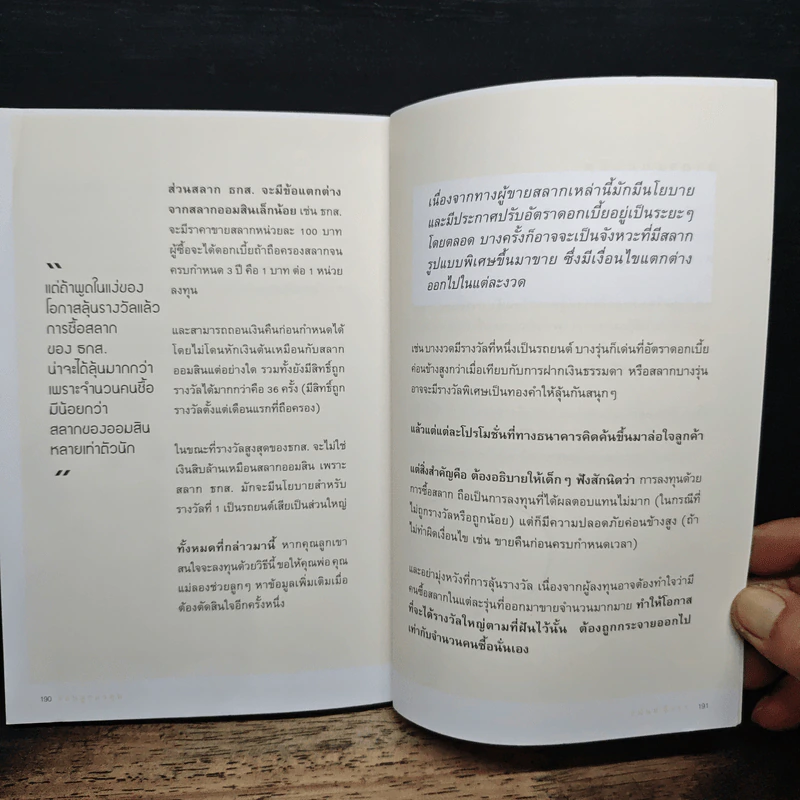 ส่วนสลาก ธกส. จะมีข้อแตกต่าง
จากสลากออมสินเล็กน้อย เช่น ธกส.
จะมีราคาขายสลากหน่วยละ 100 บาท
ผู้ซื้อจะได้ดอกเบี้ยถ้าถือครองสลากจน
ครบกำหนด 3 ปี คือ 1 บาท ต่อ 1 หน่วย
ลงทุน
"
แต่ถ้าพูดในแง่ของ
โอกาสลุ้นรางวัลแล้ว
การซื้อสลาก
ของ ธกส.
น่าจะได้ลุ้นมากกว่า
เพราะจำนวนคนซื้อ
มีน้อยกว่า
สลากของออมสิน
หลายเท่าตัวนัก
"
และสามารถถอนเงินคืนก่อนกำหนดได้
โดยไม่โดนหักเงินต้นเหมือนกับสลาก
ออมสินแต่อย่างใด รวมทั้งยังมีสิทธิ์ถูก
รางวัลได้มากกว่าคือ 36 ครั้ง (มีสิทธิ์ถูก
รางวัลตั้งแต่เดือนแรกที่ถือครอง)
ในขณะที่รางวัลสูงสุดของธกส. จะไม่ใช่
เงินสิบล้านเหมือนสลากออมสิน เพราะ
สลาก ธกส. มักจะมีนโยบายสำหรับ
รางวัลที่ 1 เป็นรถยนต์เสียเป็นส่วนใหญ่
ทั้งหมดที่กล่าวมานี้ หากคุณลูกเขา
สนใจจะลงทุนด้วยวิธีนี้ ขอให้คุณพ่อคุณ
แม่ลองช่วยลูกๆ หาข้อมูลเพิ่มเติมเมื่อ
ต้องตัดสินใจอีกครั้งหนึ่ง
190
เนื่องจากทางผู้ขายสลากเหล่านี้มักมีนโยบาย
และมีประกาศปรับอัตราดอกเบี้ยอยู่เป็นระยะๆ
โดยตลอด บางครั้งก็อาจจะเป็นจังหวะที่มีสลาก
รูปแบบพิเศษขึ้นมาขาย ซึ่งมีเงื่อนไขแตกต่าง
ออกไปในแต่ละงวด
เช่น บางงวดมีรางวัลที่หนึ่งเป็นรถยนต์ บางรุ่นก็เด่นที่อัตราดอกเบี้ย
ค่อนข้างสูงกว่าเมื่อเทียบกับการฝากเงินธรรมดา หรือสลากบางรุ่น
อาจจะมีรางวัลพิเศษเป็นทองคำให้ลุ้นกันสนุกๆ
แล้วแต่แต่ละโปรโมชั่นที่ทางธนาคารคิดค้นขึ้นมาล่อใจลูกค้า
แต่สิ่งสำคัญคือ ต้องอธิบายให้เด็กๆ ฟังสักนิดว่า การลงทุนด้วย
การซื้อสลาก ถือเป็นการลงทุนที่ได้ผลตอบแทนไม่มาก (ในกรณีที่
ไม่ถูกรางวัลหรือถูกน้อย) แต่ก็มีความปลอดภัยค่อนข้างสูง (ถ้า
ไม่ทำผิดเงื่อนไข เช่น ขายคืนก่อนครบกำหนดเวลา)
และอย่ามุ่งหวังที่การลุ้นรางวัล เนื่องจากผู้ลงทุนอาจต้องทำใจว่ามี
คนซื้อสลากในแต่ละรุ่นที่ออกมาขายจำนวนมากมาย ทำให้โอกาส
ที่จะได้รางวัลใหญ่ตามที่ฝันไว้นั้น ต้องถูกกระจายออกไป
เท่ากับจำนวนคนซื้อนั่นเอง
191